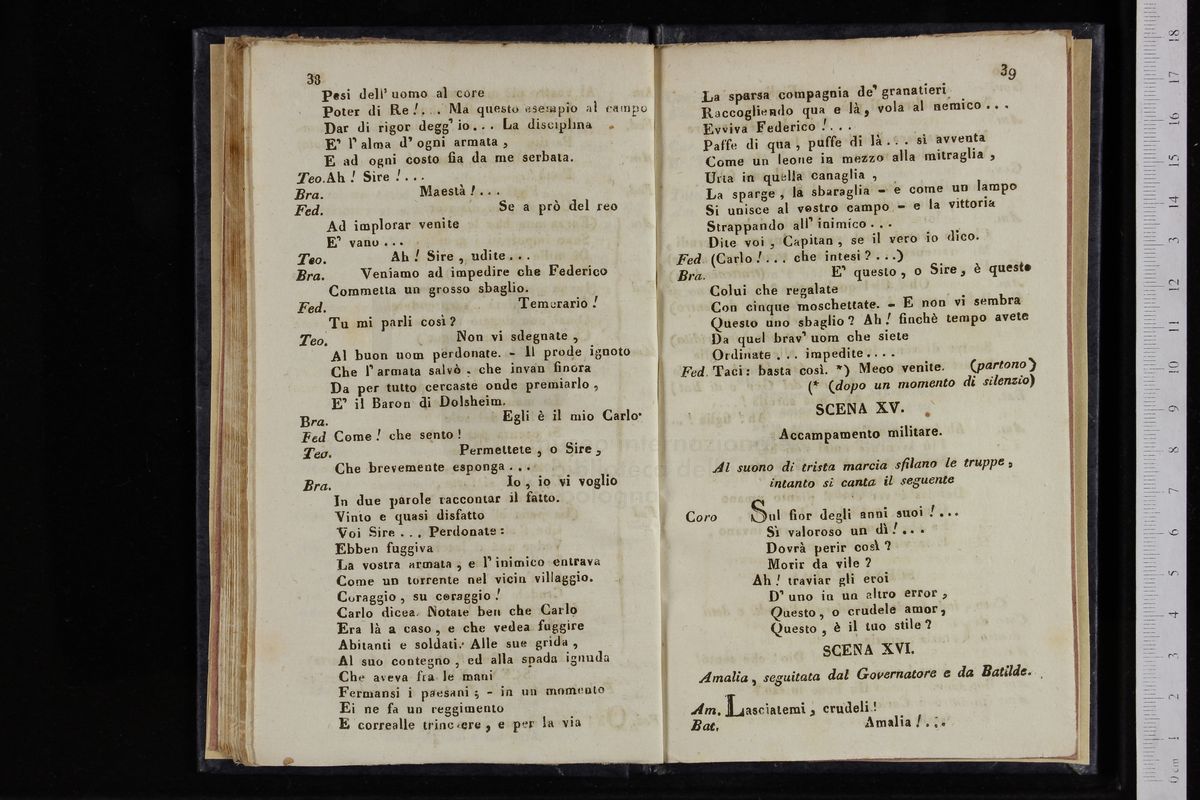 38
Pesi dell' uomo al core
Poter di Re !... Ma questo esempio al campo
Dar di rigor degg' io... La disciplina
E' l' alma d' ogni armata ,
E ad ogni costo fia da me serbata.
Teo. Ah ! Sire !...
Bra. Maestà !...
Fed. Se a prò del reo
Ad implorar venite
E' vano ...
Teo. Ah ! Sire , udite ...
Bra. Veniamo ad impedire che Federico
Commetta un grosso sbaglio.
Fed. Temerario !
Tu mi parli così ?
Teo. Non vi sdegnate ,
Al buon uom perdonate. - Il prode ignoto
Che l' armata salvò . che invan finora
Da per tutto cercaste onde premiarlo ,
E' il Baron di Dolsheim.
Bra. Egli è il mio Carlo.
Fed Come ! che sento !
Teo. Permettete , o Sire ,
Che brevemente esponga ...
Bra. Io , io vi voglio
In due parole raccontar il fatto.
Vinto e quasi disfatto
Voi Sire ... Perdonate :
Ebben fuggiva
La vostra armata , e l' inimico entrava
Come un torrente nel vicin villaggio.
Coraggio , su coraggio !
Carlo dicea. Notate ben che Carlo
Era là a caso , e che vedea fuggire
Abitanti e soldati. Alle sue grida ,
Al suo contegno , ed alla spada ignuda
Che aveva fra le mani
Fermansi i paesani ; - in un momento
Ei ne fa un reggimento
E correalle trincere , e per la via
39
La sparsa compagnia de' granatieri
Raccogliendo qua e là , vola al nemico ...
Evviva Federico !...
Paffe di qua , puffe di là ... si avventa
Come un leone in mezzo alla mitraglia ,
Urta in quella canaglia ,
La sparge , la sbaraglia - e come un lampo
Si unisce al vostro campo - e la vittoria
Strappando all' inimico ...
Dite voi , Capitan , se il vero io dico.
Fed (Carlo !... che intesi ? ...)
Bra. E' questo , o Sire , è questo
Colui che regalate
Con cinque moschettate. - E non vi sembra
Questo uno sbaglio ? Ah ! finchè tempo avete
Da quel brav' uom che siete
Ordinate ... impedite....
Fed. Taci : basta così. *) Meco venite. (partono)
(* (dopo un momento di silenzio)
SCENA XV.
Accampamento militare.
Al suono di trista marcia sfilano le truppe ,
intanto si canta il seguente
Coro Sul fior degli anni suoi !...
Sì valoroso un dì !...
Dovrà perir così ?
Morir da vile ?
Ah ! traviar gli eroi
D' uno in un altro error ,
Questo , o crudele amor ,
Questo , è il tuo stile ?
SCENA XVI.
Amalia , seguitata dal Governatore e da Batilde.
Am. Lasciatemi , crudeli !
Bat. Amalia !...